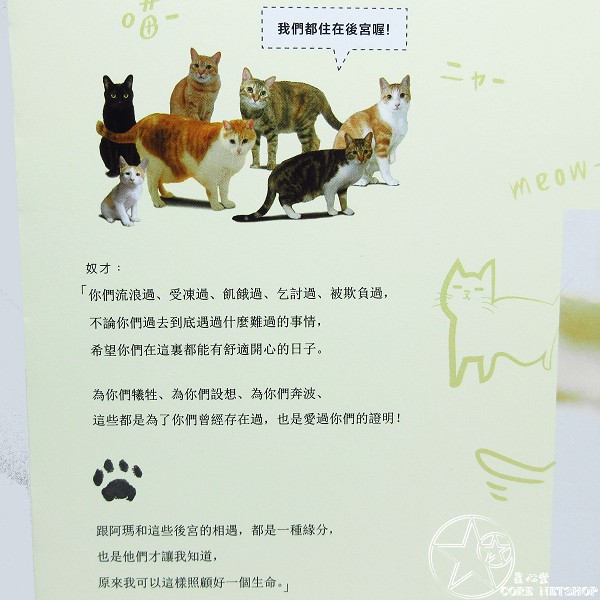 喵-
我們都住在後宮喔!
ニャー
meow-
奴才：
「你們流浪過、受凍過、飢餓過、乞討過、被欺負過，
不論你們過去到底遇過什麼難過的事情，
希望你們在這裏都能有舒適開心的日子。
為你們犧牲、為你們設想、為你們奔波、
這些都是為了你們曾經存在過，也是愛過你們的證明!
跟阿瑪和這些後宮的相遇，都是一種緣分，
也是他們才讓我知道，
原來我可以這樣照顧好一個生命。」
CORE NETSHOP